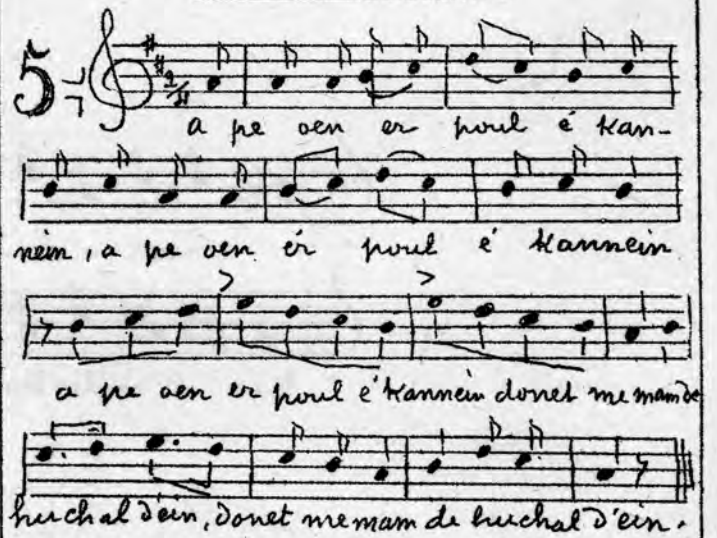 5
2/4
a pe oen er poul é kan-
nein, a pe oen ér poul é kannein
a pe oen er poul é kannein donet me mam de
huchal dein, donet me mam de huchal d'ein.